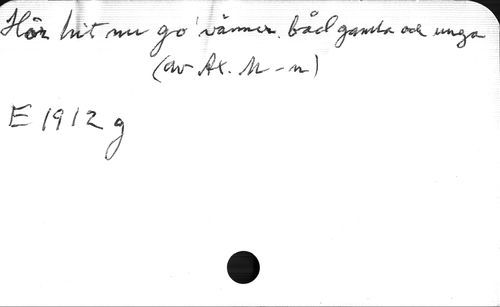 Hör hit nu go' vänner. båd gamla och unga
(av Ax. M-n)
E 1912 g